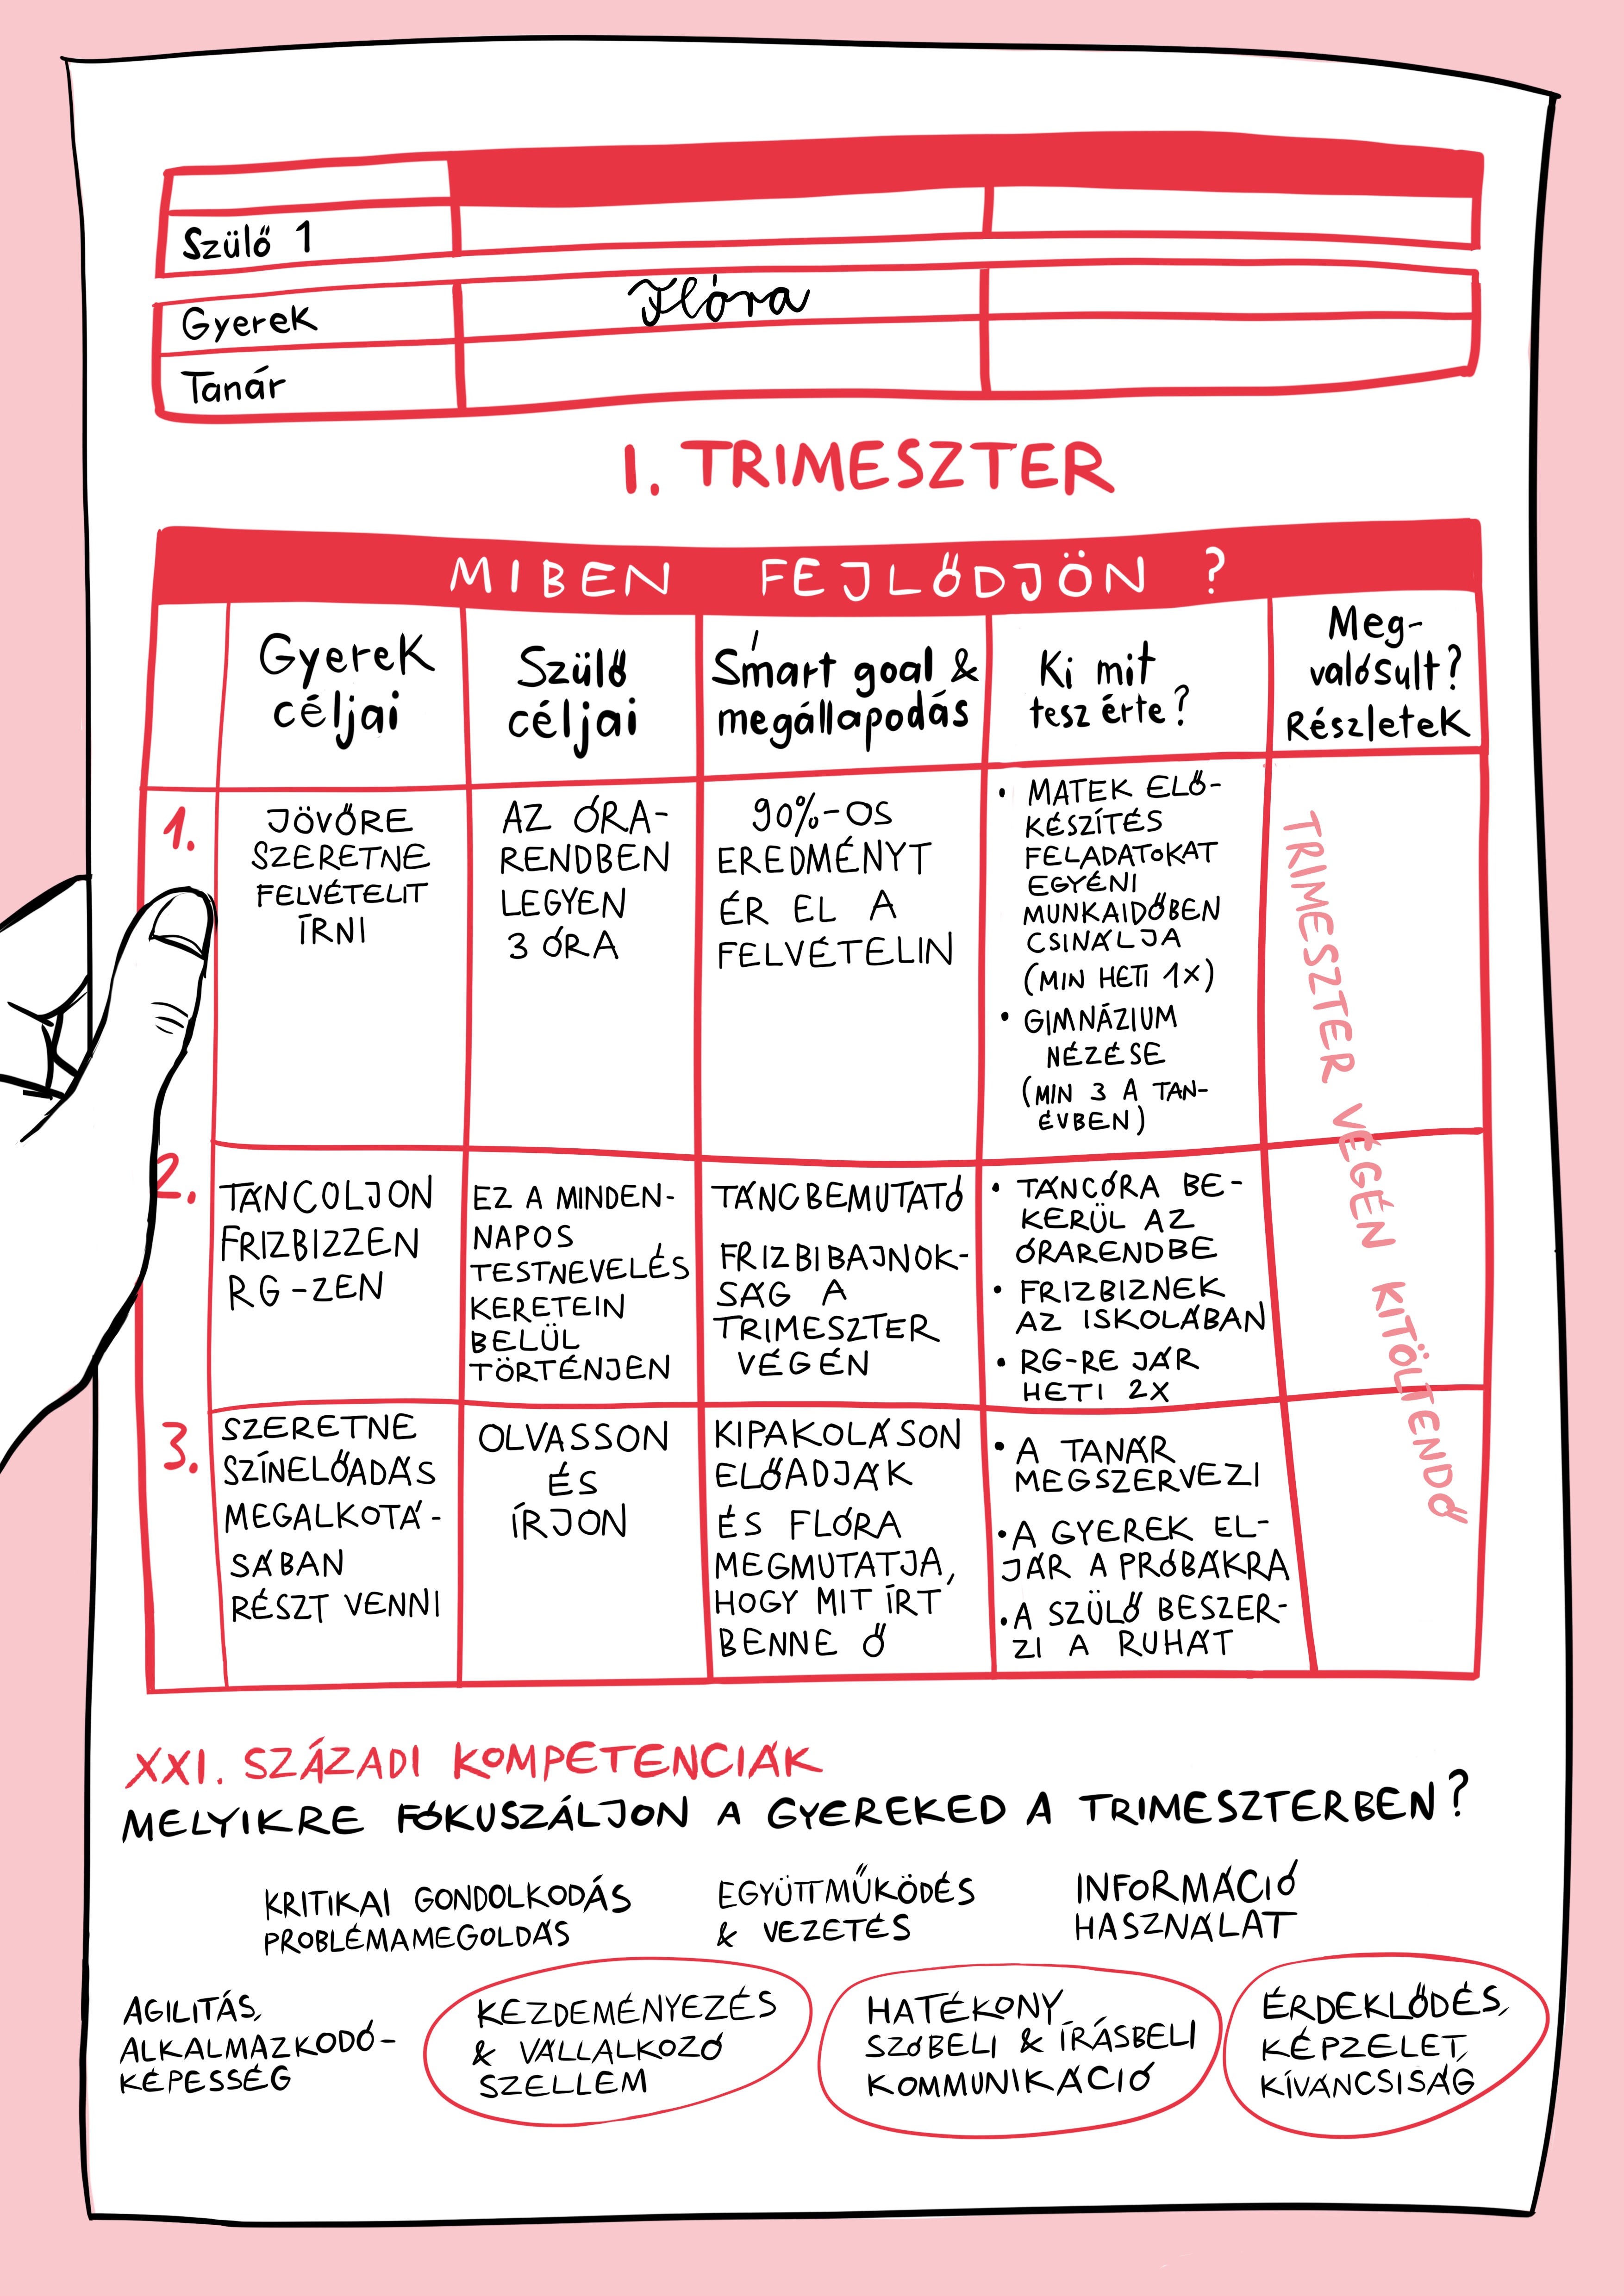 Szülő 1
Gyerek Flóra
Tanár
I. TRIMESZTER
MIBEN FEJLŐDJÖN ?
Gyerek
céljai
Szülő
céljai
Smart goal &
megállapodás
Ki mit
tesz érte?
Meg-
valósult?
Részletek
1.
JÖVŐRE
SZERETNE
FELVÉTELIT
ÍRNI
AZ ÓRA-
RENDBEN
LEGYEN
3 ÓRA
90%-OS
EREDMÉNYT
ÉR EL A
FELVÉTELIN
• MATEK ELŐ-
KÉSZÍTÉS
FELADATOKAT
EGYÉNI
MUNKAIDŐBEN
CSINÁLJA
(MIN HETI 1X)
• GIMNÁZIUM
NÉZÉSE
(MIN 3 A TAN-
ÉVBEN)
TRIMESZTER VÉGÉN KITÖLTENDŐ
2.
TÁNCOLJON
FRIZBIZZEN
RG-ZEN
EZ A MINDEN-
NAPOS
TESTNEVELÉS
KERETEIN
BELÜL
TÖRTÉNJEN
TÁNCBEMUTATÓ
FRIZBIBAJNOK-
SÁG A
TRIMESZTER
VÉGÉN
• TÁNCÓRA BE-
KERÜL AZ
ÓRARENDBE
• FRIZBIZNEK
AZ ISKOLÁBAN
• RG-RE JÁR
HETI 2X
3.
SZERETNE
SZÍNELŐADÁS
MEGALKOTÁ-
SÁBAN
RÉSZT VENNI
OLVASSON
ÉS
ÍRJON
KIPAKOLÁSON
ELŐADJÁK
ÉS FLÓRA
MEGMUTATJA,
HOGY MIT ÍRT
BENNE Ő
• A TANÁR
MEGSZERVEZI
• A GYEREK EL-
JÁR A PRÓBÁKRA
• A SZÜLŐ BESZER-
ZI A RUHÁT
XXI. SZÁZADI KOMPETENCIÁK
MELYIKRE FÓKUSZÁLJON A GYEREKED A TRIMESZTERBEN?
KRITIKAI GONDOLKODÁS
PROBLÉMAMEGOLDÁS
EGYÜTTMŰKÖDÉS
& VEZETÉS
INFORMÁCIÓ
HASZNÁLAT
AGILITÁS,
ALKALMAZKODÓ-
KÉPESSÉG
KEZDEMÉNYEZÉS
& VÁLLALKOZÓ
SZELLEM
HATÉKONY
SZÓBELI & ÍRÁSBELI
KOMMUNIKÁCIÓ
ÉRDEKLŐDÉS,
KÉPZELET,
KÍVÁNCSISÁG